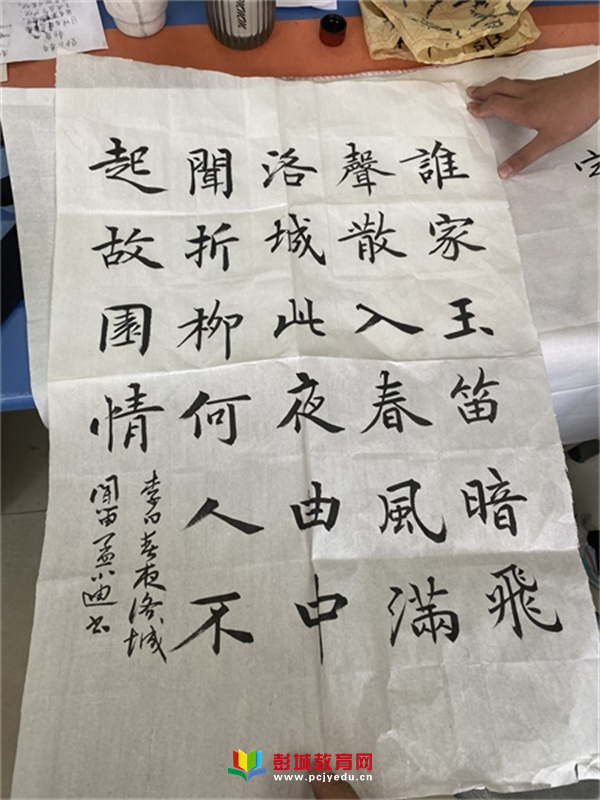 誰家玉笛暗飛
聲散入春風滿
洛城此夜由中
聞折柳何人不
起故園情
李白春夜洛城
闻笛 孟小迪书
彭城教育网
www.pcjyedu.cn